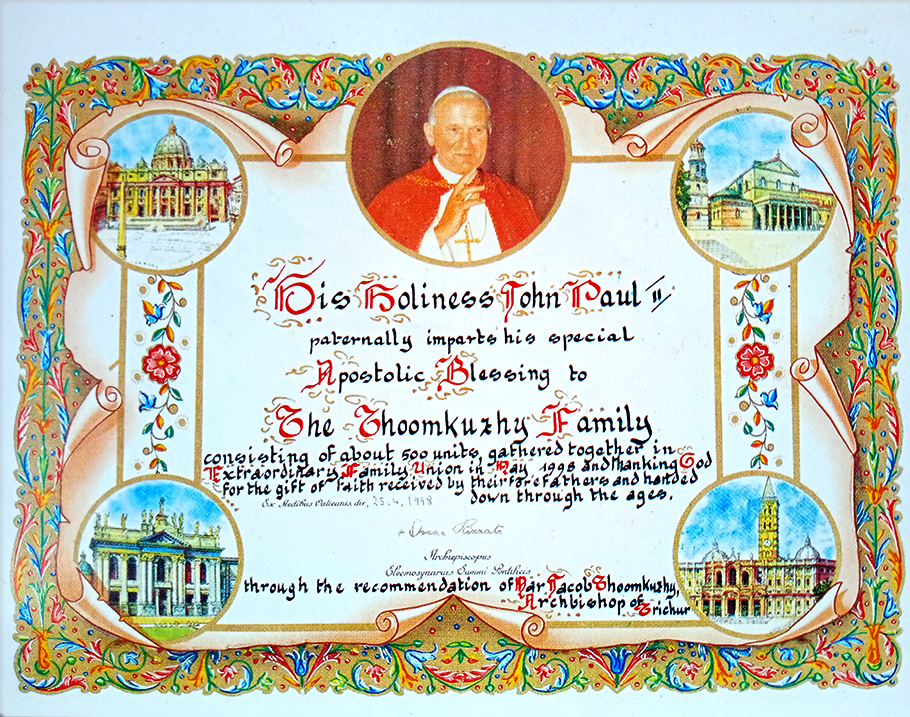 His Holiness John Paul II
paternally imparts his special
Apostolic Blessing to
The Thoomkuzhy Family
consisting of about 500 units, gathered together in
Extraordinary Family Union in May 1998 and thanking God
for the gift of faith received by their forefathers and handed
down through the ages.
Ex Aedibus Vaticanis, die, 25.4.1998
+ Oscar Rizzato
Archiepiscopus
Eleemosynarius Summi Pontificis
through the recommendation of Mar Jacob Thoomkuzhy,
Archbishop of
Trichur